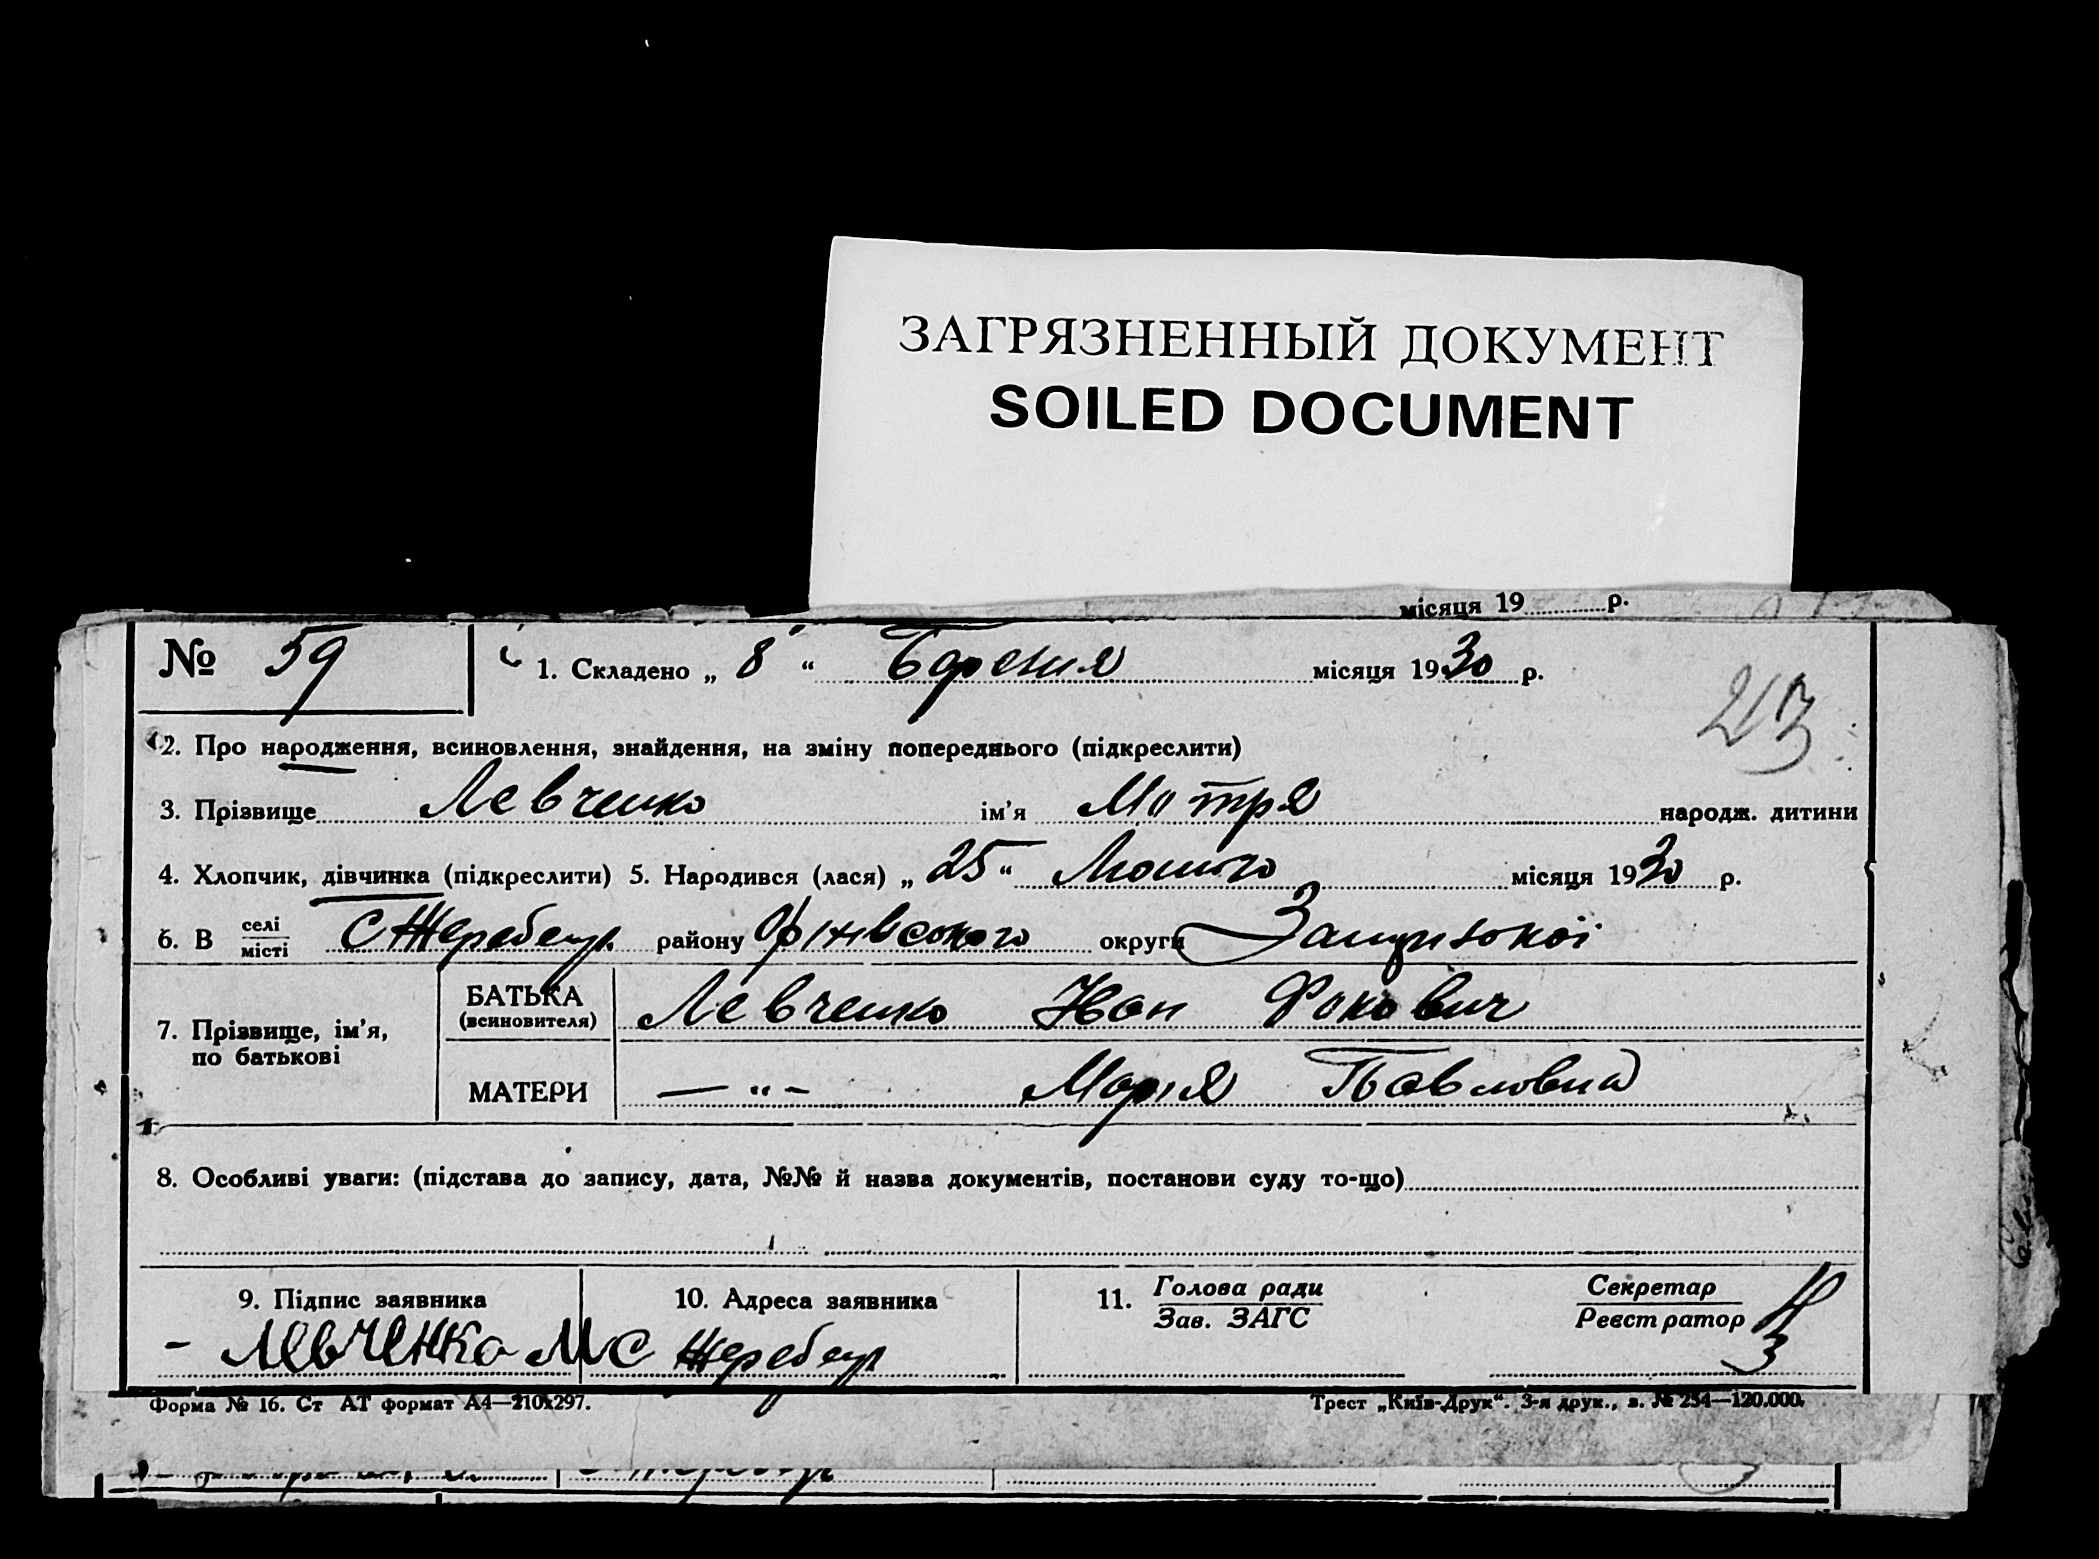 ЗАГРЯЗНЕННЫЙ ДОКУМЕНТ
SOILED DOCUMENT
місяця 19 р.
№ 59 1. Складено „ 8 “ Березня місяця 1930 р.
23
2. Про народження, всиновлення, знайдення, на зміну попереднього (підкреслити)
3. Прізвище Левченко ім’я Мотря народж. дитини
4. Хлопчик, дівчинка (підкреслити) 5. Народився (лася) „ 25 “ Лютого місяця 1930 р.
6. В селі
місті С Жеребець району Оріхівського округи Запорізької
7. Прізвище, ім’я,
по батькові
БАТЬКА
(всиновителя) Левченко Іван Фокович
МАТЕРИ — “ – Марія Павловна
8. Особливі уваги: (підстава до запису, дата, №№ й назва документів, постанови суду то-що)
9. Підпис заявника 10. Адреса заявника 11. Голова ради
Зав. ЗАГС Секретар
Реєстратор
– Левченко М С Жеребець
Форма № 16. Ст АТ формат А4—210х297. Трест „Київ-Друк“. 3-я друк., з. № 254—120.000.